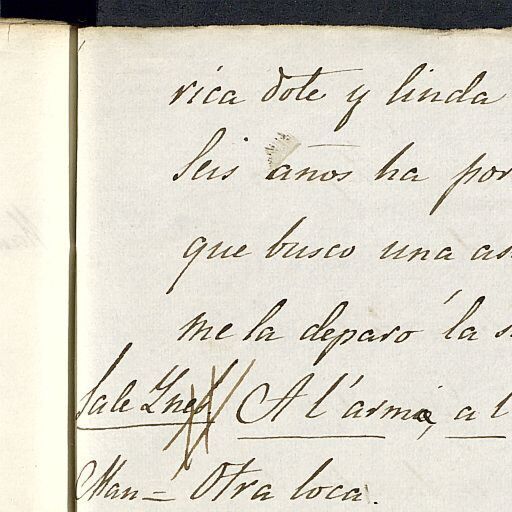 rica dote y linda
Seis años ha por
que busco una
me la deparó la
Sale Ynes A l'arma, a l
Man = Otra loca.